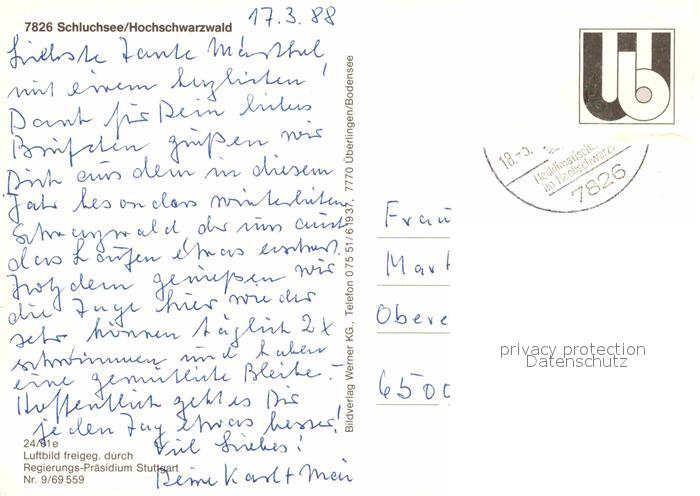 17.3.88
7826 Schluchsee/Hochschwarzwald
Liebste Tante Märthel
mit einem herzlichen!
Dank für Dein liebes
Brieflein grüßen wir
Dich aus dem in diesem
Jahr besonders winterlichen
Schwarzwald der uns auch
das Laufen etwas erschwert.
Trotzdem genießen wir
die Tage hier wieder
sehr können täglich 2x
schwimmen und haben
eine gemütliche Bleibe. -
Hoffentlich geht es Dir
jeden Tag etwas besser!
Viel Liebes!
Deine Karl +
24/61e
Luftbild freigeg. durch
Regierungs-Präsidium Stuttgart
Nr. 9/69 559
Bildverlag Werner KG., Telefon 0 75 51/6 19 37, 7770 Überlingen/Bodensee
ub
18.-3.
Heilklimatische
im Hochschwarz
7826
Frau
Mart
Obere
6500
privacy protection
Datenschutz